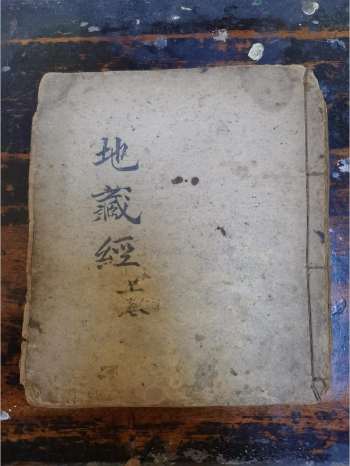 地藏經上卷